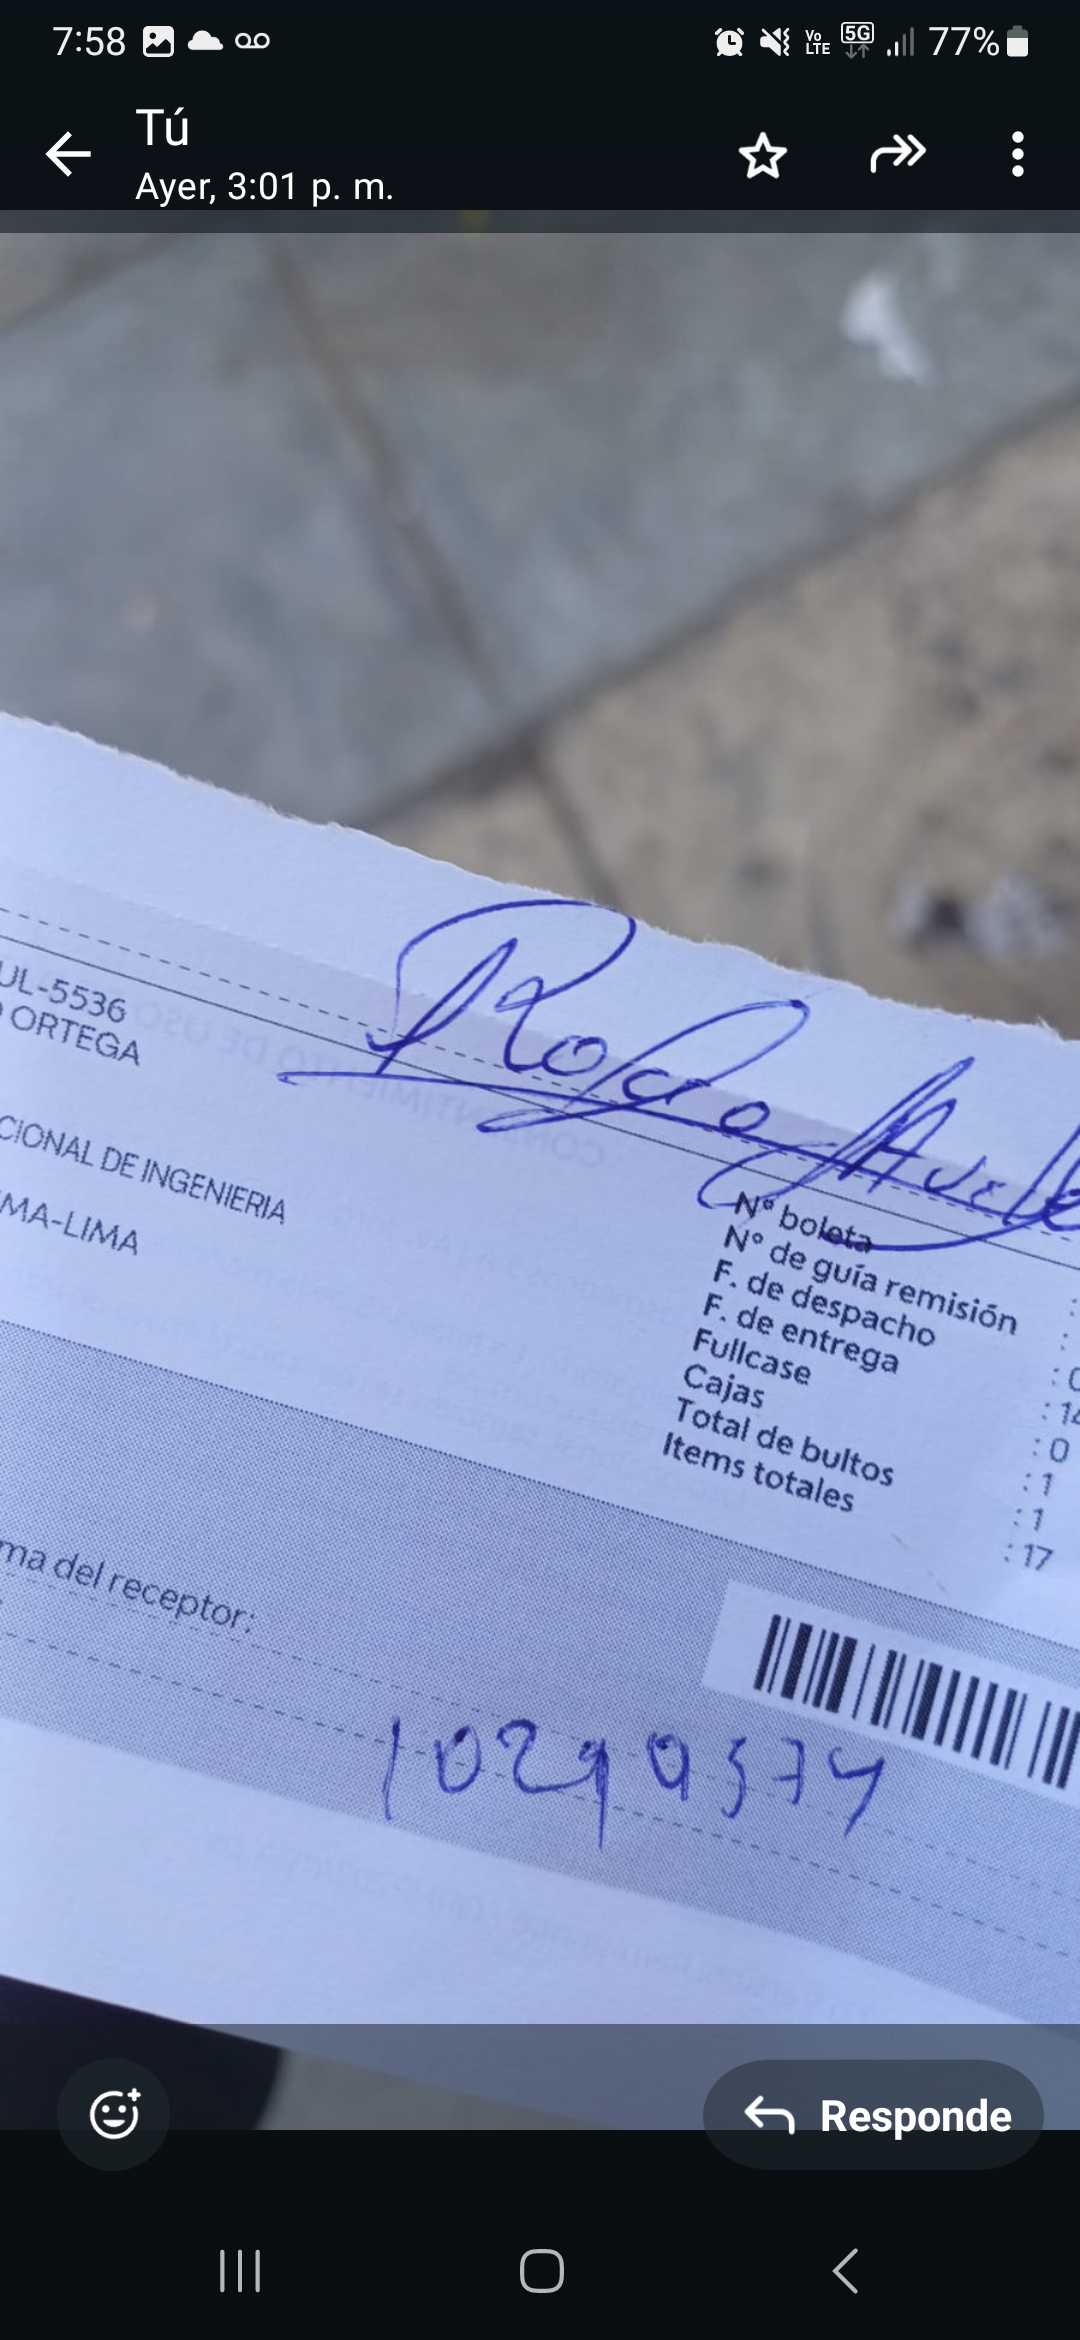 7:58
Vo LTE 5G 77%
Tú
Ayer, 3:01 p. m.
UL-5536
ORTEGA
CIONAL DE INGENIERIA
MA-LIMA
N° boleta
N° de guía remisión :
F. de despacho :
F. de entrega : 14
Fullcase : 0
Cajas : 1
Total de bultos : 1
Items totales : 17
ma del receptor:
Responde